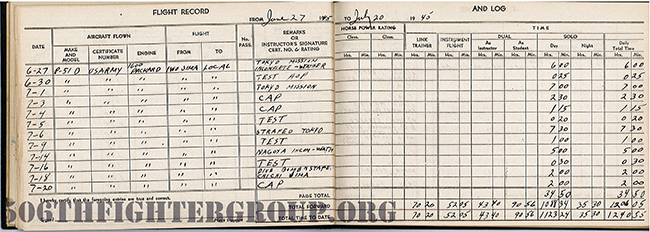 FLIGHT RECORD
FROM June 27 1945
TO July 20 1945
AND LOG
DATE
AIRCRAFT FLOWN
MAKE AND MODEL
CERTIFICATE NUMBER
ENGINE
FLIGHT
FROM
TO
No. PASS.
REMARKS
INSTRUCTOR'S SIGNATURE
CERT. NO. & RATING
HORSE POWER RATING
Class. Class.
TIME
LINK TRAINER
INSTRUMENT FLIGHT
DUAL
As Instructor
As Student
SOLO
Day
Night
Daily Total Time
Hr. Min. Hr. Min. Hr. Min. Hr. Min. Hr. Min. Hr. Min. Hr. Min. Hr. Min. Hr. Min.
6-27 P-51 D USARMY 1600 PACKARD IWO JIMA LOCAL TOKYO MISSION INCOMPLETE-WEATHER 6 00 6 00
6-30 " " " " " TEST HOP 0 25 0 25
7-1 " " " " " TOKYO MISSION 7 00 7 00
7-3 " " " " " CAP 2 30 2 30
7-4 " " " " " CAP 1 15 1 15
7-5 " " " " " TEST 0 20 0 20
7-6 " " " " " STRAFED TOKYO 7 30 7 30
7-9 " " " " " TEST 1 00 1 00
7-14 " " " " " NAGOYA 5 00 5 00
7-16 " " " " " TEST 0 30 0 30
7-18 " " " " " DIVE BOMB & STRAFE CHICHI JIMA 2 00 2 00
7-20 " " " " " CAP 2 00 2 00
I hereby certify that the foregoing entries are true and correct.
PAGE TOTAL 34 50 34 50
TOTAL FORWARD 70 20 52 05 43 40 90 56 1088 34 35 30 1206 05
TOTAL TIME TO DATE 70 20 52 05 43 40 90 56 1123 24 35 30 1240 55
506THFIGHTERGROUP.ORG